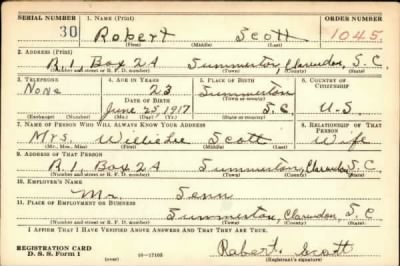 SERIAL NUMBER 1. NAME (Print) ORDER NUMBER
30 Robert Scott 1045
(First) (Middle) (Last)
2. ADDRESS (Print)
R.1, Box 24 Summerton, Clarendon, S.C.
(Number and street or R. F. D. number) (Town) (County) (State)
3. TELEPHONE 4. AGE IN YEARS 5. PLACE OF BIRTH 6. COUNTRY OF CITIZENSHIP
None 23 Summerton
DATE OF BIRTH (Town or county)
June 25, 1917 S.C. U.S.
(Exchange) (Number) (Mo.) (Day) (Yr.) (State or country)
7. NAME OF PERSON WHO WILL ALWAYS KNOW YOUR ADDRESS 8. RELATIONSHIP OF THAT PERSON
Mrs. Scott Wife
(Mr., Mrs., Miss) (First) (Middle) (Last)
9. ADDRESS OF THAT PERSON
R.1, Box 24 Summerton, Clarendon, S.C.
(Number and street or R. F. D. number) (Town) (County) (State)
10. EMPLOYER'S NAME
Mr.
11. PLACE OF EMPLOYMENT OR BUSINESS
Summerton, Clarendon S.C.
(Number and street or R. F. D. number) (Town) (County) (State)
I AFFIRM THAT I HAVE VERIFIED ABOVE ANSWERS AND THAT THEY ARE TRUE.
REGISTRATION CARD Robert Scott
D. S. S. Form 1 (over) 16—17105 (Registrant's signature)